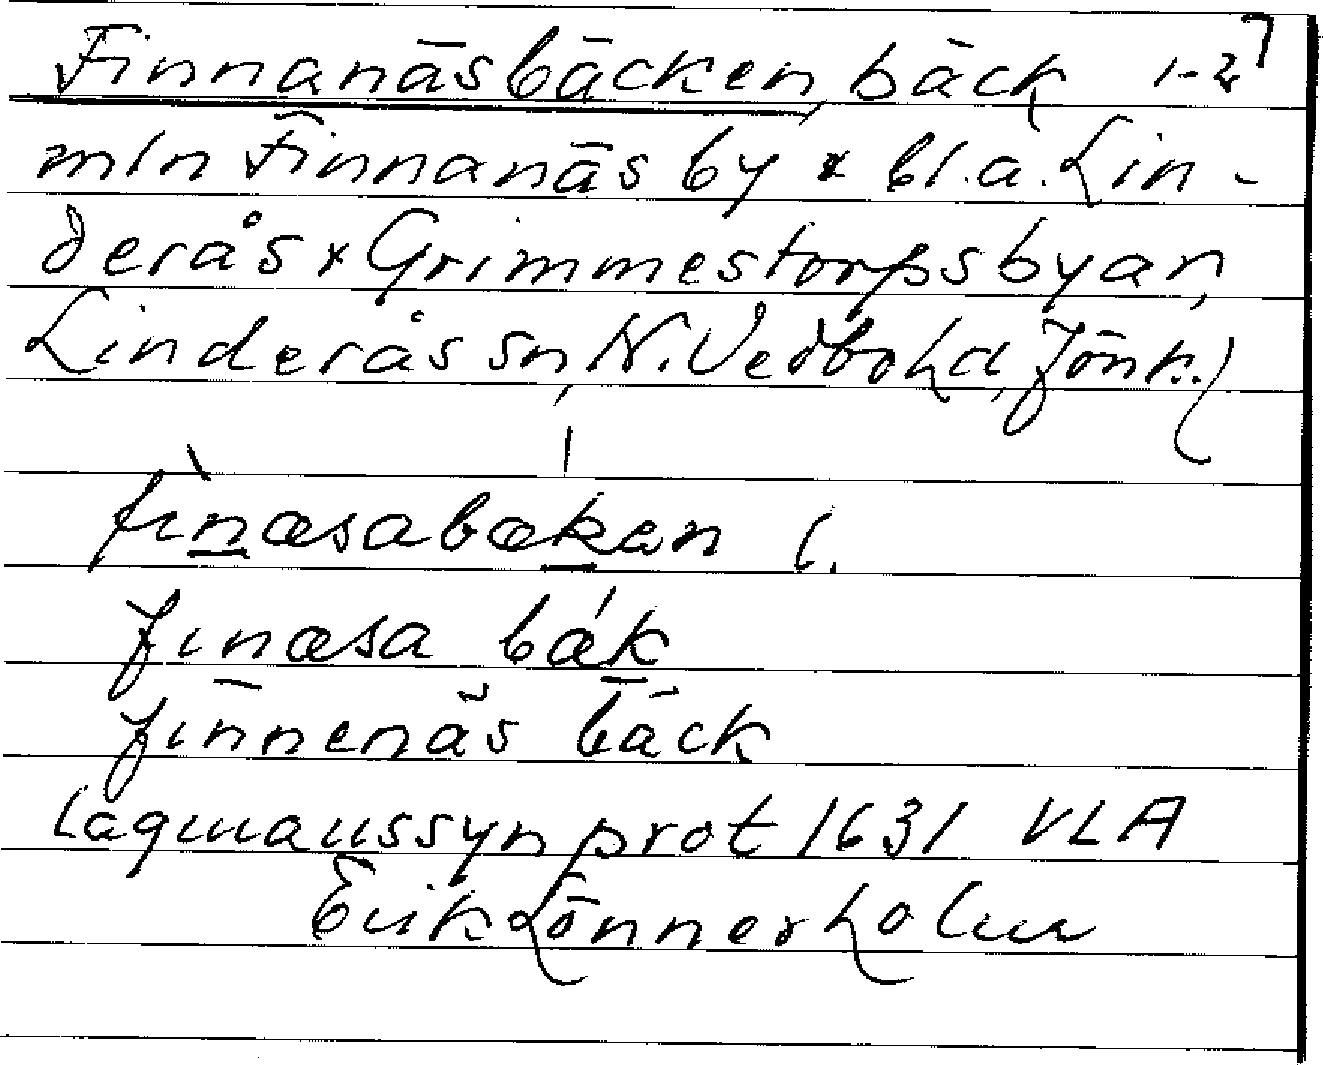 Finnanäsbäcken, bäck 1-2
mln Finnanäs by x bl.a. Lin-
derås x Grimmestorpsbyan,
Linderås sn, N. Vedbo hd, Jönk.l
fìnæsabækən l.
finæsa bǽk
finnenäs bäck
Lagmanssynprot 1631 VLA
Erik Lönnerholm